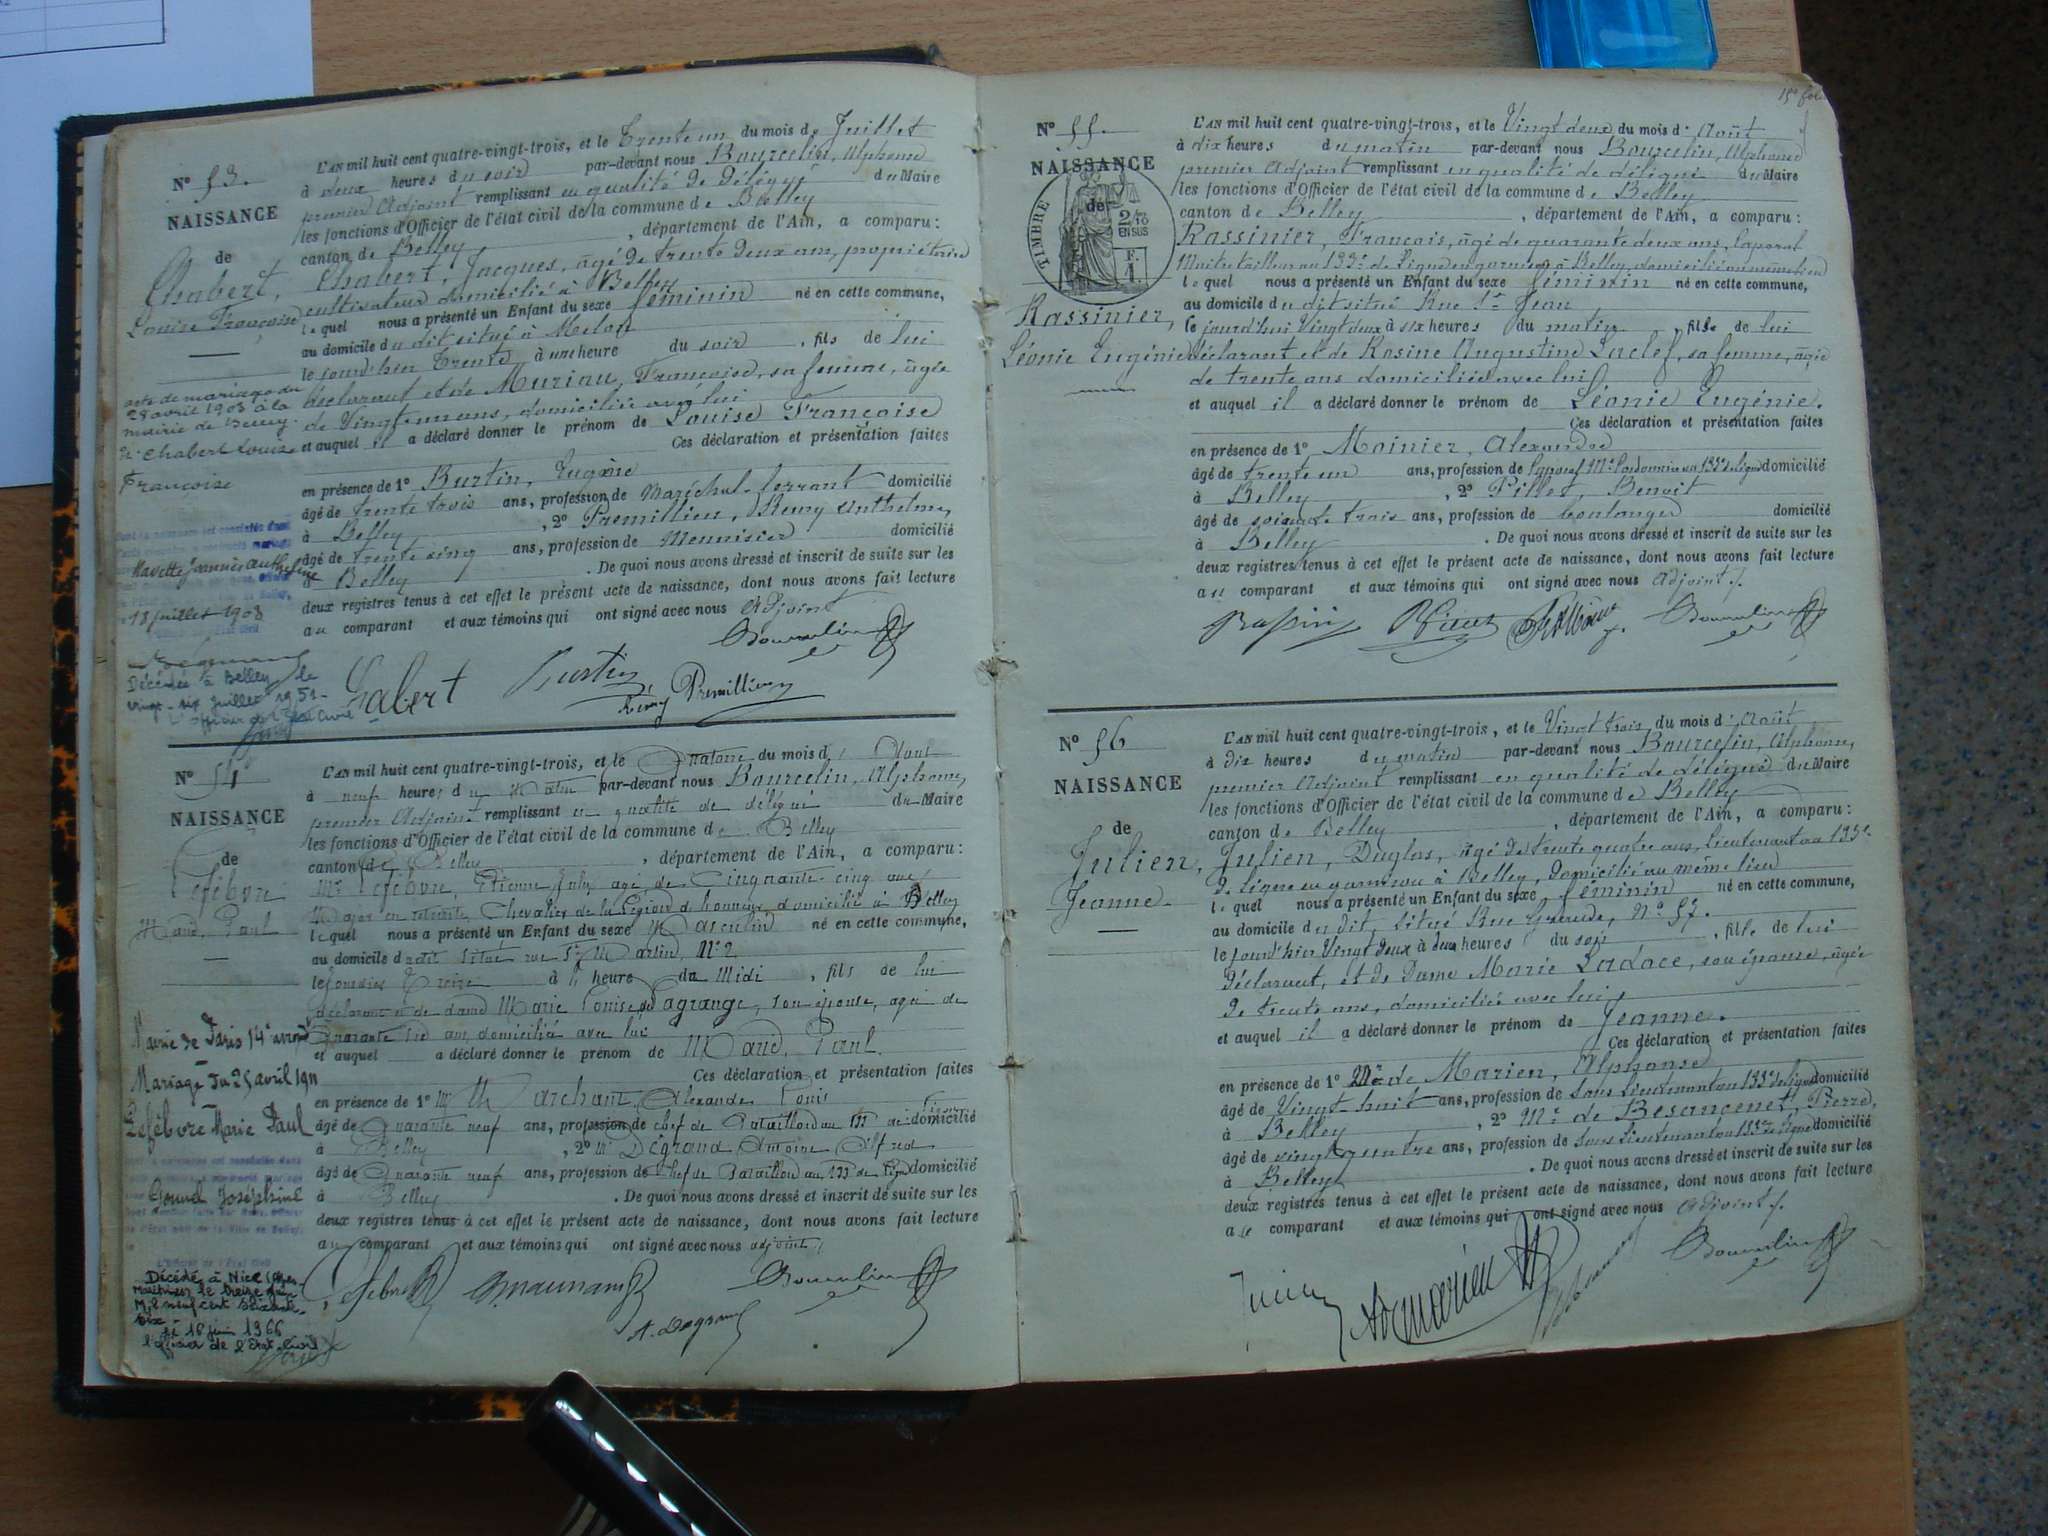 N° 53.
NAISSANCE
de
Chabert,
Louise Françoise
L'AN mil huit cent quatre-vingt-trois, et le Trente un du mois de Juillet
à deux heures du soir par-devant nous Bourcelin, Alphonse
premier Adjoint remplissant en qualité de Délégué du Maire
les fonctions d'Officier de l'état civil de la commune de Belley
canton de Belley , département de l'Ain, a comparu :
Chabert, Jacques, âgé de trente deux ans, propriétaire
cultivateur domicilié à Belley
lequel nous a présenté un Enfant du sexe féminin né en cette commune,
au domicile du dit situé à Melon
le jour d'hier trente à une heure du soir , fils de lui
déclarant et de Muriau, Françoise, sa femme, âgée
de Vingt ans, domiciliée avec lui
et auquel il a déclaré donner le prénom de Louise Françoise
Ces déclaration et présentation faites
en présence de 1° Burtin, Eugène
âgé de trente trois ans, profession de Maréchal-ferrant domicilié
à Belley , 2° Premillieu, Remy Anthelme,
âgé de trente cinq ans, profession de Menuisier domicilié
à Belley . De quoi nous avons dressé et inscrit de suite sur les
deux registres tenus à cet effet le présent acte de naissance, dont nous avons fait lecture
au comparant et aux témoins qui ont signé avec nous Adjoint
Chabert Burtin Rémy Premillieu Bourcelin
acte de mariage du
28 avril 1903 à la
mairie de Belley
Chabert Louise
Françoise
18 juillet 1903
Décédée à Belley le
vingt-six Juillet 1951-
L'officier de l'Etat Civil
N° 54
NAISSANCE
de
Lefébvre
Maud, Paul
L'AN mil huit cent quatre-vingt-trois, et le Quatorze du mois d'Aout
à neuf heures du Matin par-devant nous Bourcelin, Alphonse,
premier Adjoint remplissant en qualité de délégué du Maire
les fonctions d'Officier de l'état civil de la commune de Belley
canton de Belley , département de l'Ain, a comparu :
Mr Lefébvre, Etienne July agé de Cinquante-cinq ans,
Major en retraite, Chevalier de la Légion d'honneur domicilié à Belley
lequel nous a présenté un Enfant du sexe Masculin né en cette commune,
au domicile du dit situé rue St Martin, N° 2
le jour d'hier Treize à heure du Midi , fils de lui
déclarant et de dame Marie Louise Lagrange, son épouse, agée de
Quarante ans, domiciliée avec lui
et auquel a déclaré donner le prénom de Maud, Paul.
Ces déclaration et présentation faites
en présence de 1° Mr Marchant, Alexandre Louis
âgé de Quarante neuf ans, profession de chef de Bataillon au 133 de ligne domicilié
à Belley , 2° Mr Dégrand, Antoine Alfred
âgé de Quarante neuf ans, profession de Chef de Bataillon au 133 de ligne domicilié
à Belley . De quoi nous avons dressé et inscrit de suite sur les
deux registres tenus à cet effet le présent acte de naissance, dont nous avons fait lecture
au comparant et aux témoins qui ont signé avec nous adjoint
Lefebvre Bourcelin
A. Degrand
Mairie de Paris 14e arrond
Mariage du 25 avril 1911
Lefébvre Marie Paul
Gounel Joséphine
Décédé à Nice (Alpes-
Maritimes) le treize Juin
Mil neuf cent soixante-
six
le 16 juin 1966
l'officier de l'Etat Civil
15e fol
N° 55.
NAISSANCE
de
TIMBRE
2/10
EN SUS
F.
1
Rassinier,
Léonie Eugénie
L'AN mil huit cent quatre-vingt-trois, et le Vingt deux du mois d'Août
à dix heures du matin par-devant nous Bourcelin, Alphonse
premier Adjoint remplissant en qualité de délégué du Maire
les fonctions d'Officier de l'état civil de la commune de Belley
canton de Belley , département de l'Ain, a comparu :
Rassinier, François, âgé de quarante deux ans, Caporal
Maître tailleur au 133e de Ligne en garnison à Belley, domicilié au même lieu
lequel nous a présenté un Enfant du sexe féminin né en cette commune,
au domicile du dit situé Rue St Jean
Ce jourd'hui Vingt deux à six heures du matin , fille de lui
déclarant et de Rosine Augustine Laclef, sa femme, âgée
de trente ans domiciliée avec lui
et auquel il a déclaré donner le prénom de Léonie Eugénie.
Ces déclaration et présentation faites
en présence de 1° Moinier, Alexandre
âgé de trente un ans, profession de Caporal Me Cordonnier au 133e de ligne domicilié
à Belley , 2° Pillet, Benoit
âgé de soixante trois ans, profession de boulanger domicilié
à Belley . De quoi nous avons dressé et inscrit de suite sur les
deux registres tenus à cet effet le présent acte de naissance, dont nous avons fait lecture
au comparant et aux témoins qui ont signé avec nous adjoint.
Bourcelin
N° 56
NAISSANCE
de
Julien,
Jeanne.
L'AN mil huit cent quatre-vingt-trois, et le Vingt trois du mois d'Août
à dix heures du matin par-devant nous Bourcelin, Alphonse,
premier Adjoint remplissant en qualité de délégué du Maire
les fonctions d'Officier de l'état civil de la commune de Belley
canton de Belley , département de l'Ain, a comparu :
Julien, Duglas, âgé de trente quatre ans, Lieutenant au 133e
de Ligne en garnison à Belley, domicilié au même lieu
lequel nous a présenté un Enfant du sexe féminin né en cette commune,
au domicile du dit, situé Rue Grande, N° 57.
le jour d'hier Vingt deux à deux heures du soir , fille de lui
Déclarant, et de Dame Marie Ladace, son épouse, âgée
de trente ans, domiciliée avec lui
et auquel il a déclaré donner le prénom de Jeanne.
Ces déclaration et présentation faites
en présence de 1° Mr de Marien, Alphonse
âgé de Vingt huit ans, profession de Sous Lieutenant au 133e de ligne domicilié
à Belley , 2° Mr de Besancenet, Pierre,
âgé de vingt quatre ans, profession de Sous Lieutenant au 133e de ligne domicilié
à Belley . De quoi nous avons dressé et inscrit de suite sur les
deux registres tenus à cet effet le présent acte de naissance, dont nous avons fait lecture
au comparant et aux témoins qui ont signé avec nous adjoint.
Julien A de Marien Bourcelin